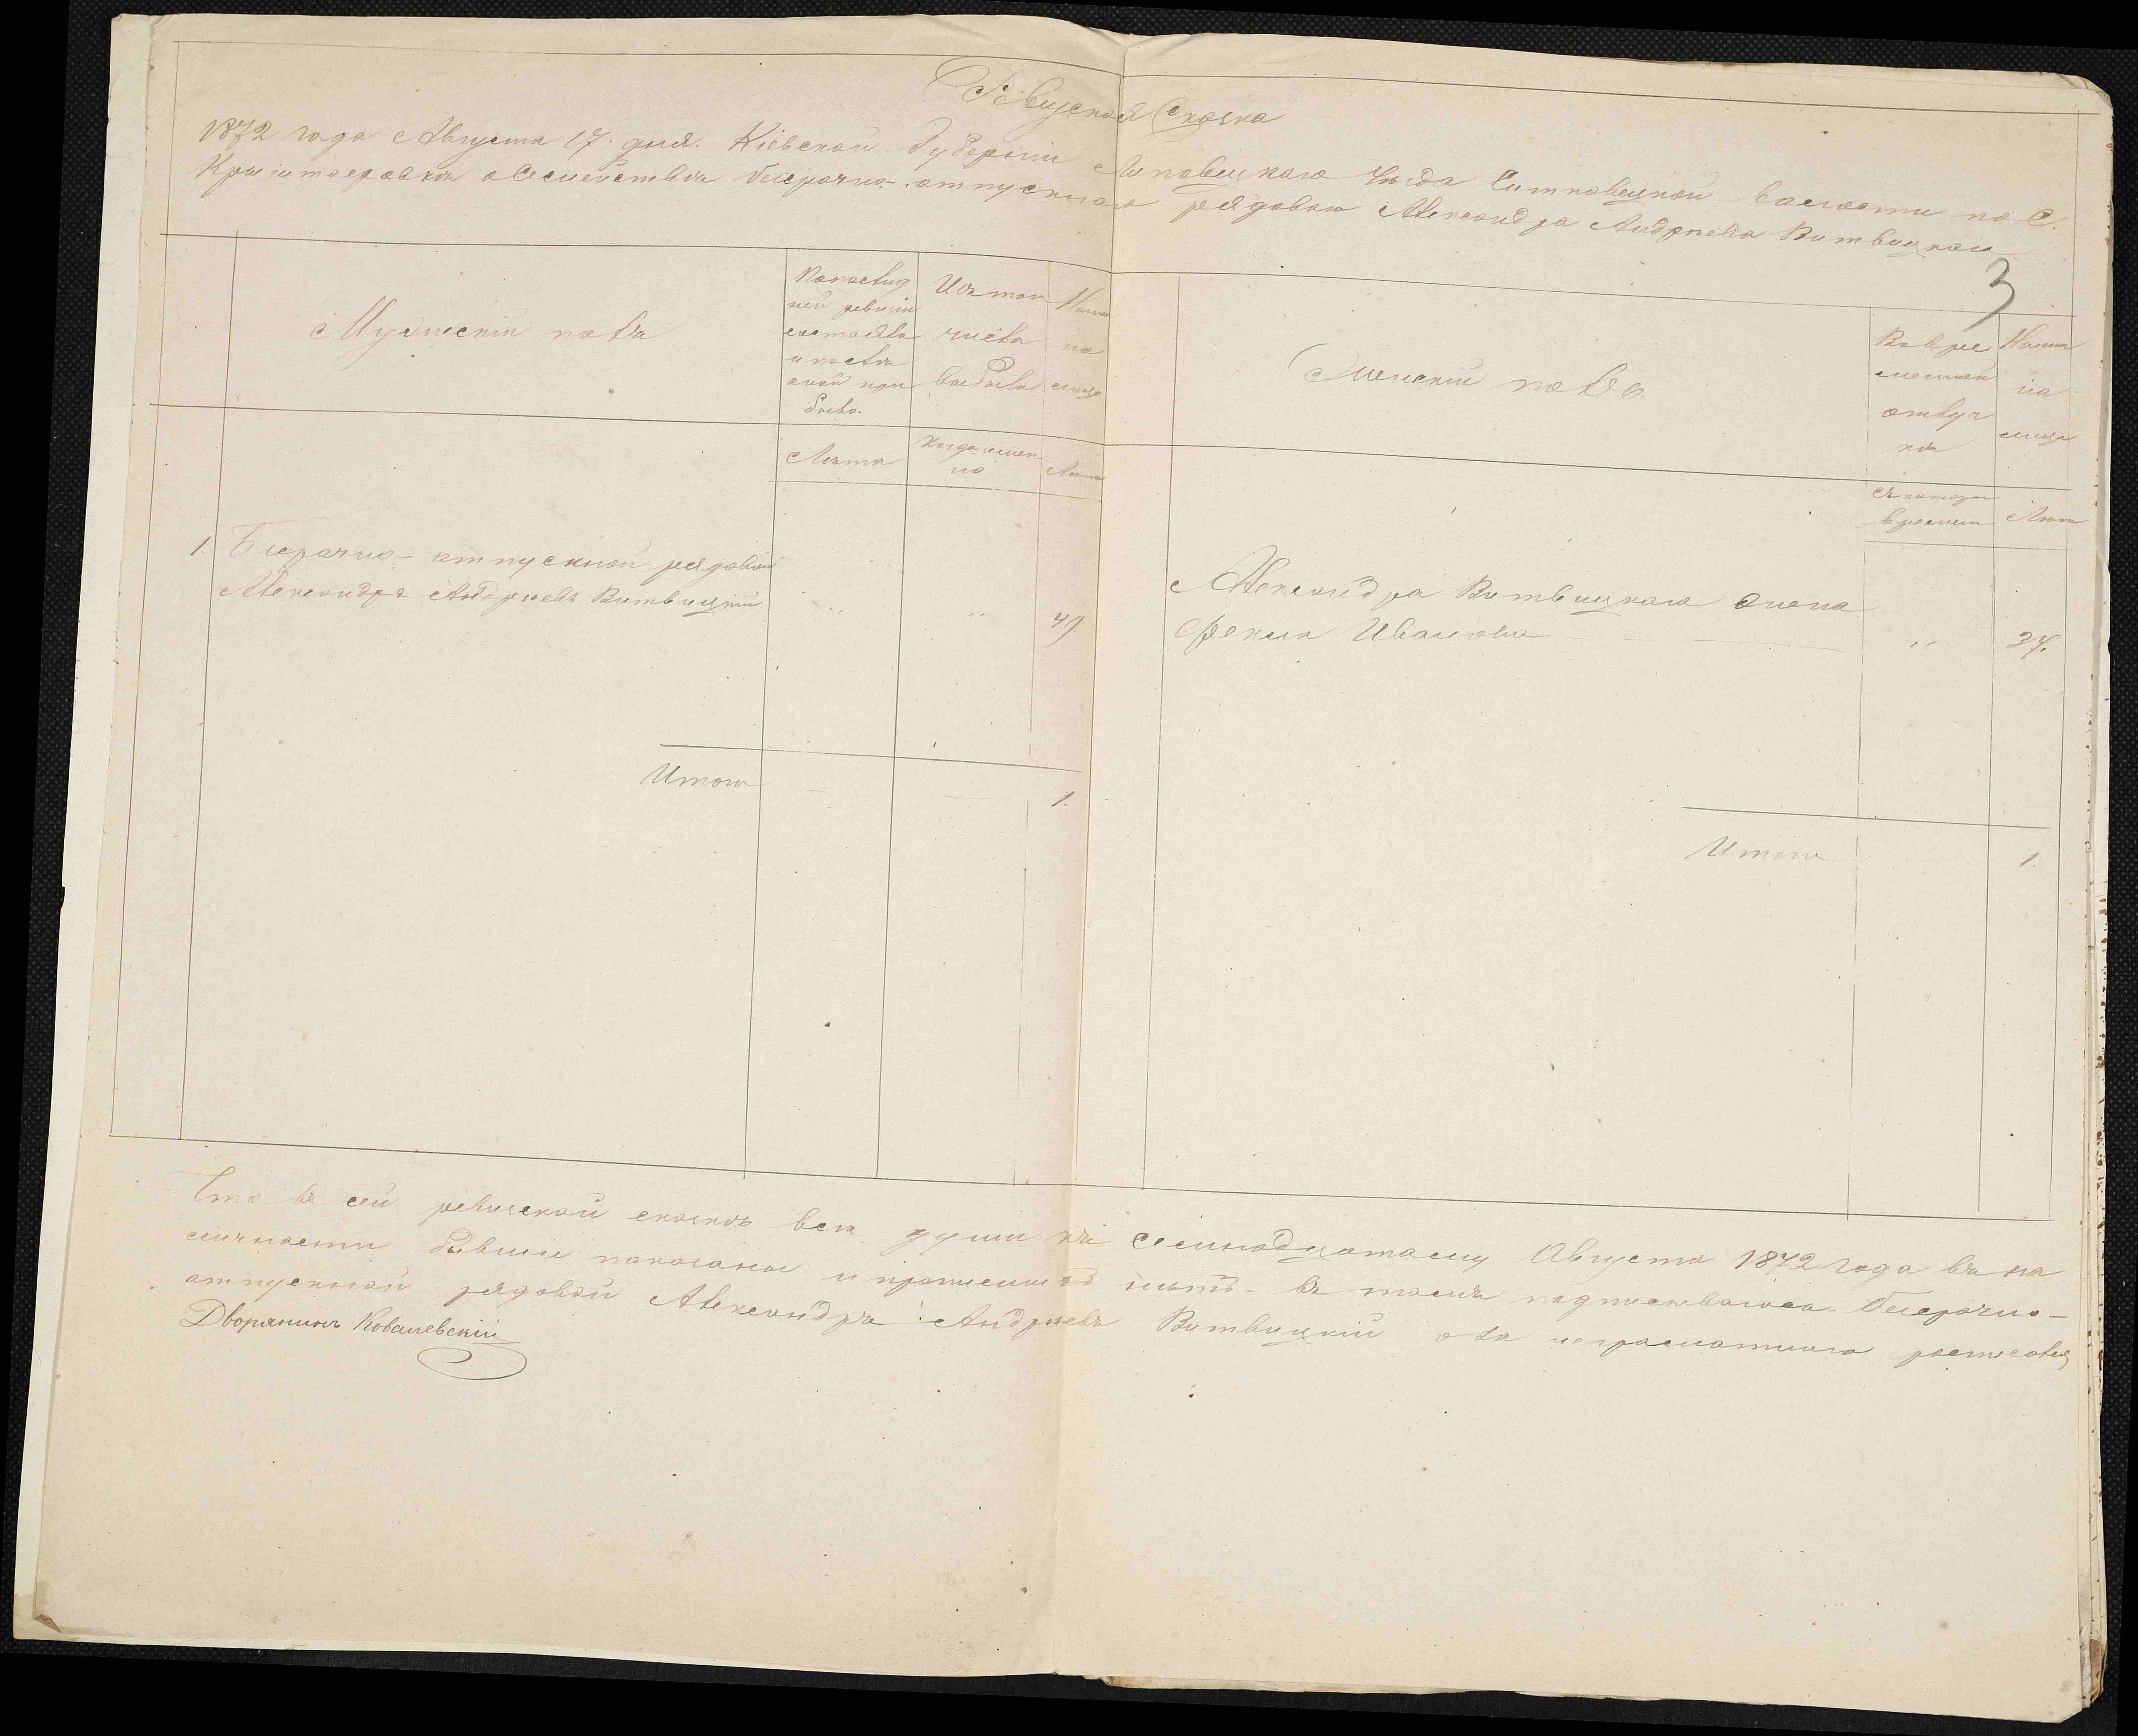 Ревизская Сказка
1872 года Августа 17. дня. Кіевской Губерніи Липовецкаго Уѣзда Ситковецкой волости по С.
Криштоповкѣ о Семействѣ безсрочно-отпускнаго рядоваго Александра Андреева Витвицкаго
3
Мужескій полъ
По послѣд
ней ревизіи
состояло
и послѣ
оной при
было.
Изъ того
числа
выбыло
Нынѣ
на
лицо
Женскій полъ.
Во вре
менной
отлуч
кѣ
Нынѣ
на
лицо
Лѣта
Когда имен
но
Лѣта
Съ котораго
времени
Лѣта
1. Безсрочно-отпускной рядовой
Александръ Андреевъ Витвицкій " " 49
Александра Витвицкаго жена
Фекла Иванова " 37.
Итого — — 1.
Итого 1.
Что въ сей ревизской сказкѣ всѣ души къ Семнадцатому Августа 1872 года въ на
личности бывшіе показаны и прописныхъ нѣтъ въ томъ подписываюсь. Безсрочно-
отпускной рядовой Александръ Андреевъ Витвицкій а за неграмотнаго росписался
Дворянинъ Ковалевскій